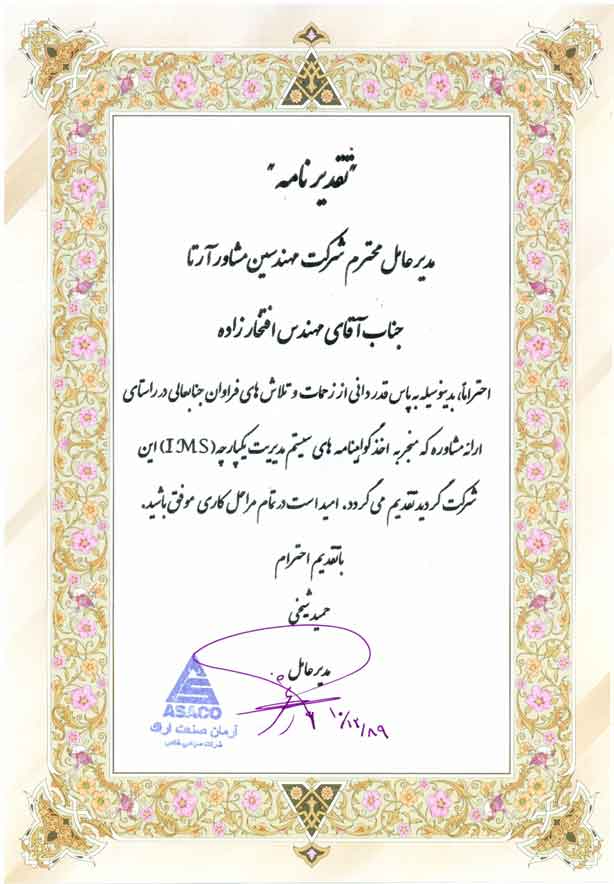 "تقدیر نامه"
مدیر عامل محترم شرکت مهندسین مشاور آرتا
جناب آقای مهندس افتخار زاده
احتراماً، بدینوسیله به پاس قدردانی از زحمات و تلاش های فراوان جنابعالی در راستای
ارائه مشاوره که منجر به اخذ گواهینامه های سیستم مدیریت یکپارچه (IMS) این
شرکت گردید تقدیم می گردد. امید است در تمام مراحل کاری موفق باشید.
با تقدیم احترام
حمید شیخی
مدیر عامل
۱۰/۱۲/۸۹
ASACO
آرمان صنعت اراک
شرکت سهامی خاص